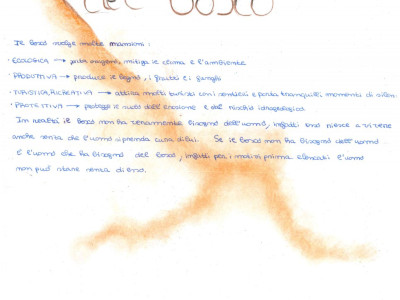 del bosco
Il bosco svolge molte mansioni:
• ECOLOGICA → ossigeno, mitiga il clima e l'ambiente
• PRODUTTIVA → produce il legno, i frutti e i funghi
• TURISTICA, RICREATIVA → attira molti turisti con i sentieri e porta tranquillità, momenti di silen.
• PROTETTIVA → protegge il suolo dall'erosione e dal rischio idrogeologico.
In realtà il bosco non ha veramente bisogno dell'uomo, infatti esso riesce a vivere
anche senza che l'uomo si prenda cura di lui. Se il bosco non ha bisogno dell'uomo
è l'uomo che ha bisogno del bosco, infatti per i motivi prima elencati l'uomo
non può stare senza di esso.